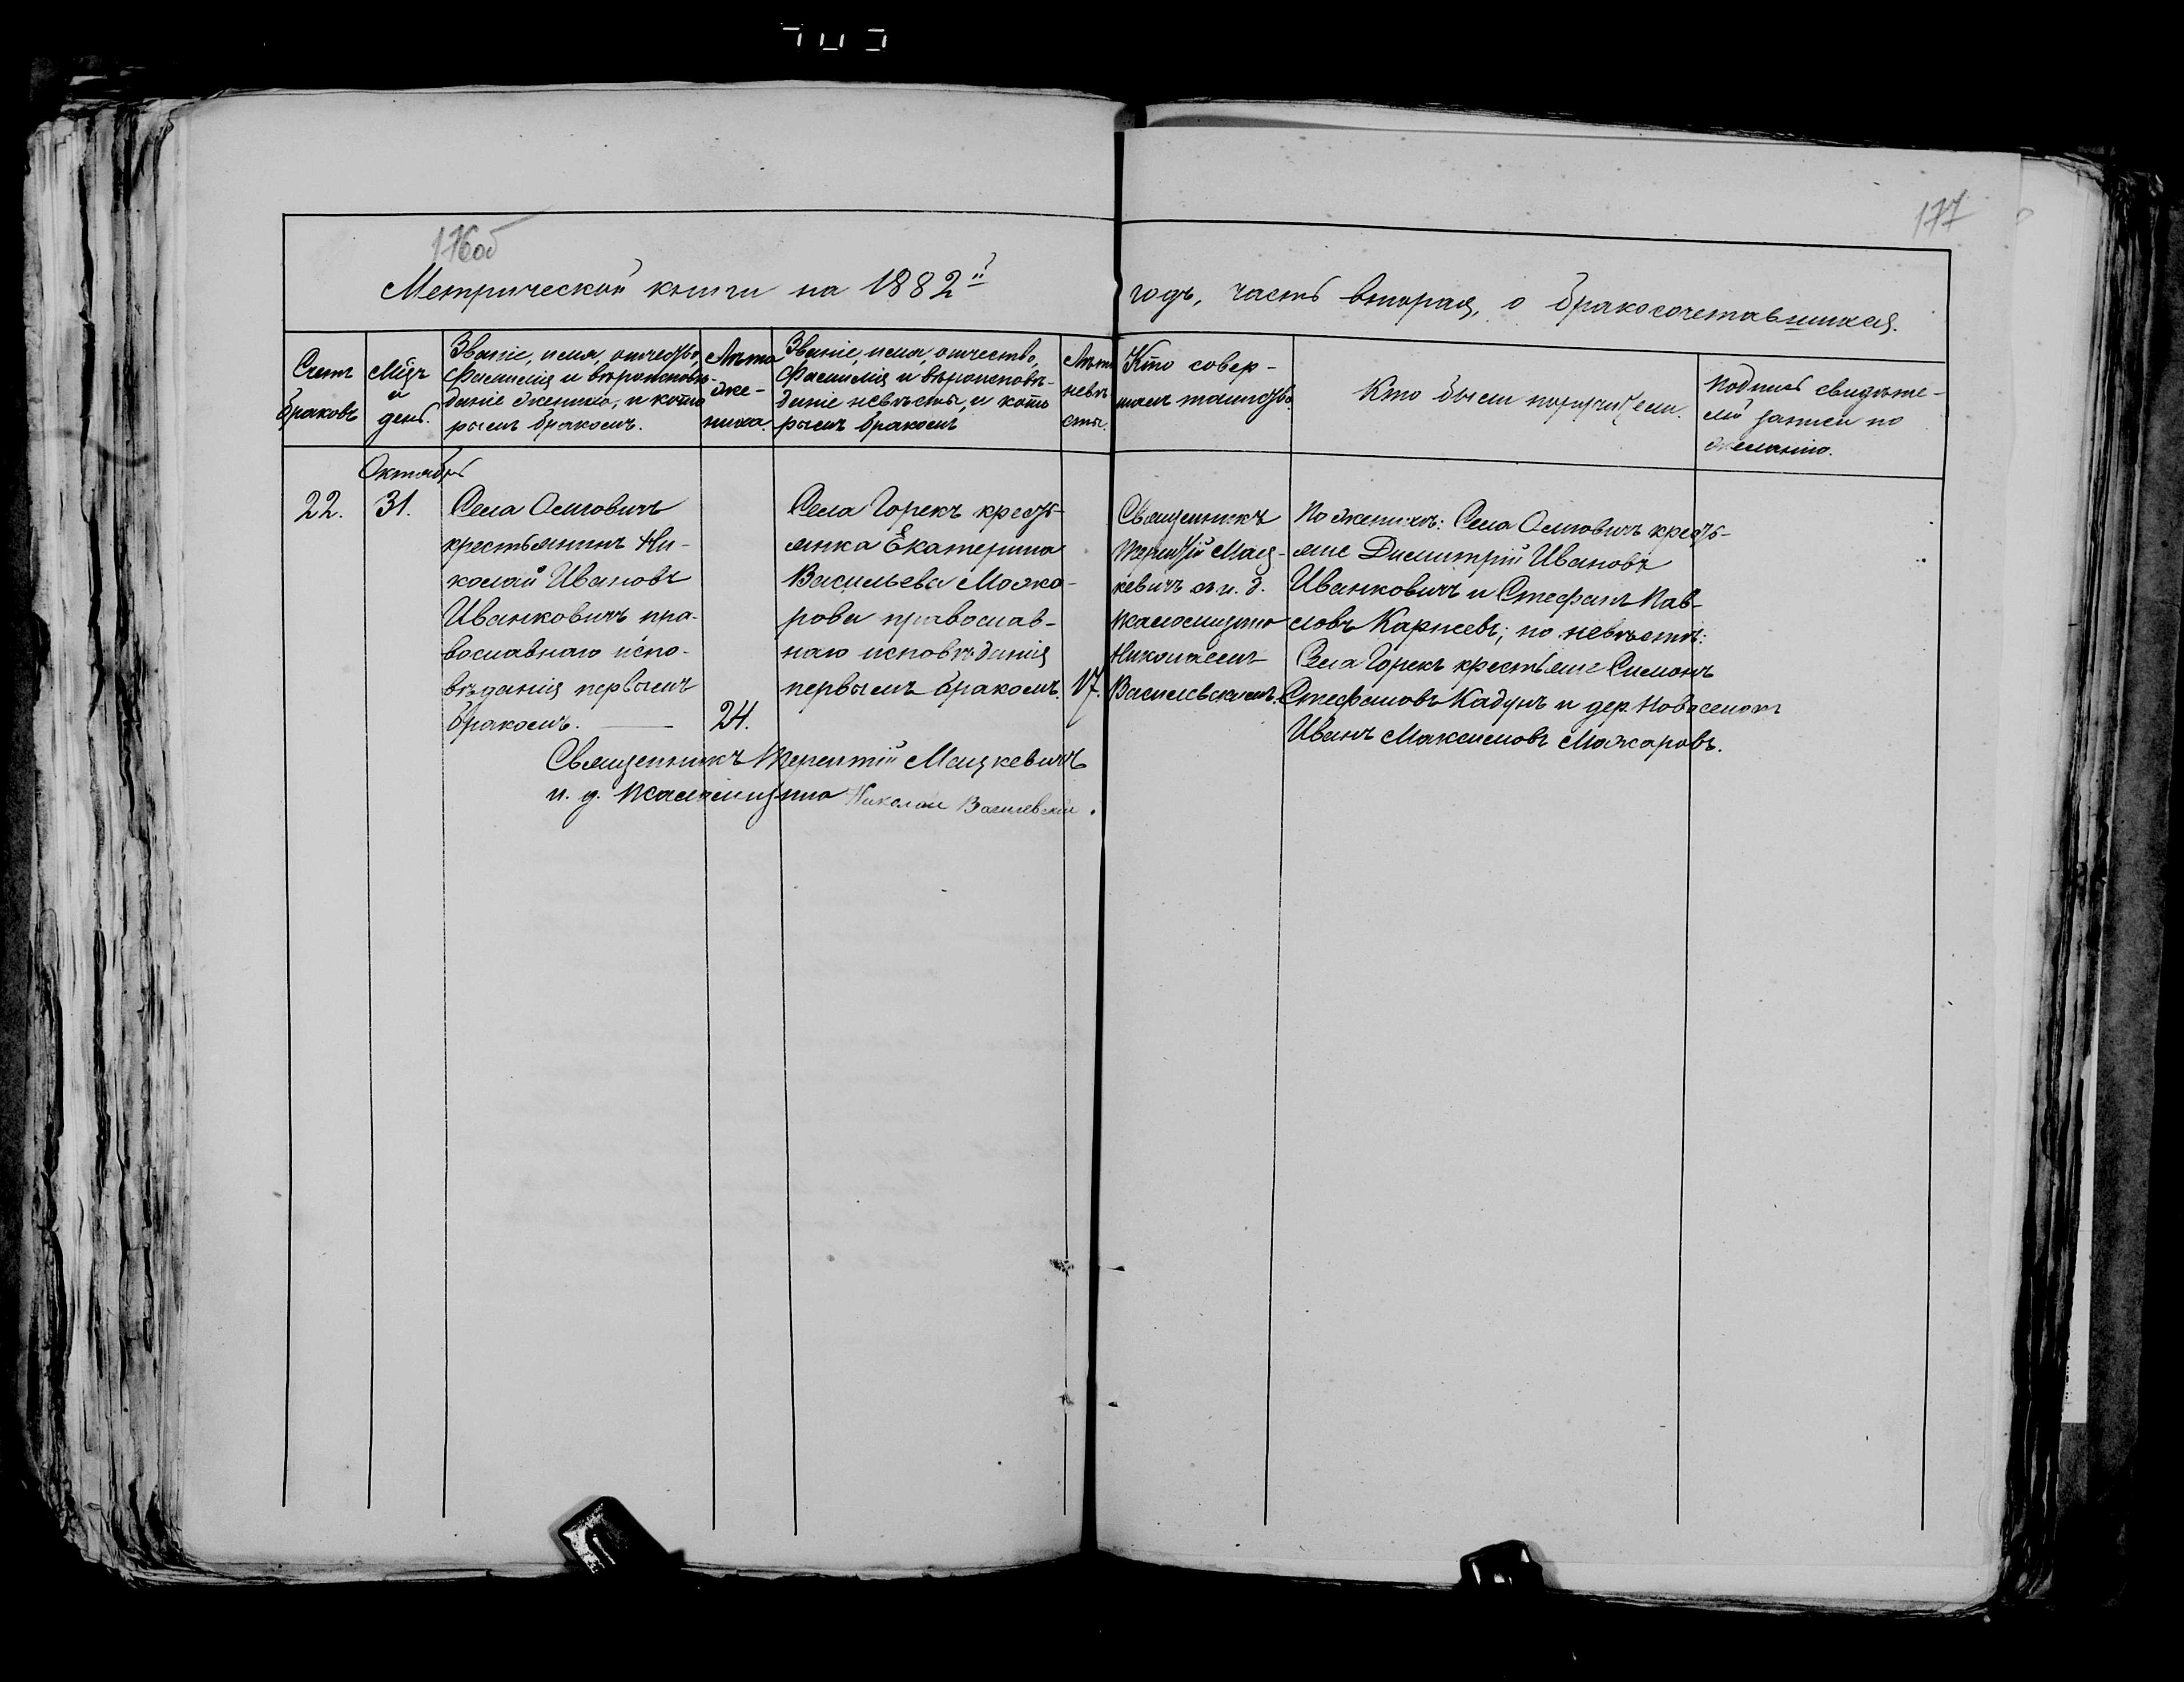 176об
177
Метрической книги на 1882й годъ, часть вторая, о бракосочетавшихся.
Счетъ
браковъ
Мцъ
и
день.
Званіе, имя, отчество,
фамилія и вѣроисповѣ-
даніе жениха, и кото
рымъ бракомъ.
Лѣта
же-
ниха.
Званіе, имя отчество,
фамилія и вѣроисповѣ-
даніе невѣсты, и кото
рымъ бракомъ
Лѣта
невѣ
сты.
Кто совер-
шалъ таинство.
Кто были поручители.
Подпись свидѣте-
лей записи по
желанію.
Октябрь
22.
31.
Села Осмовичъ
крестьянинъ Ни-
колай Ивановъ
Иванковичъ пра-
вославнаго испо-
вѣданія первымъ
бракомъ.
24.
Села Горекъ кресть-
янка Екатерина
ВасильеваМожа-
рова православ-
наго исповѣданія
первымъ бракомъ.
17.
Священникъ
Терентій Мац-
кевичъ съ и. д.
псаломщика
Николаемъ
Василевскимъ.
По женихѣ: Села Осмовичъ кресть-
яне Димитрій Ивановъ
Иванковичъ и Стефанъ Пав-
ловъ Карпеевъ; по невѣстѣ:
Села Горекъ крестьяне Симонъ
Стефановъ Кадунъ и дер. Новоселокъ
Иванъ Максимовъ Можаровъ.
Священникъ Терентій Мацкевичъ
и. д. псаломщика Николай Василевскій.